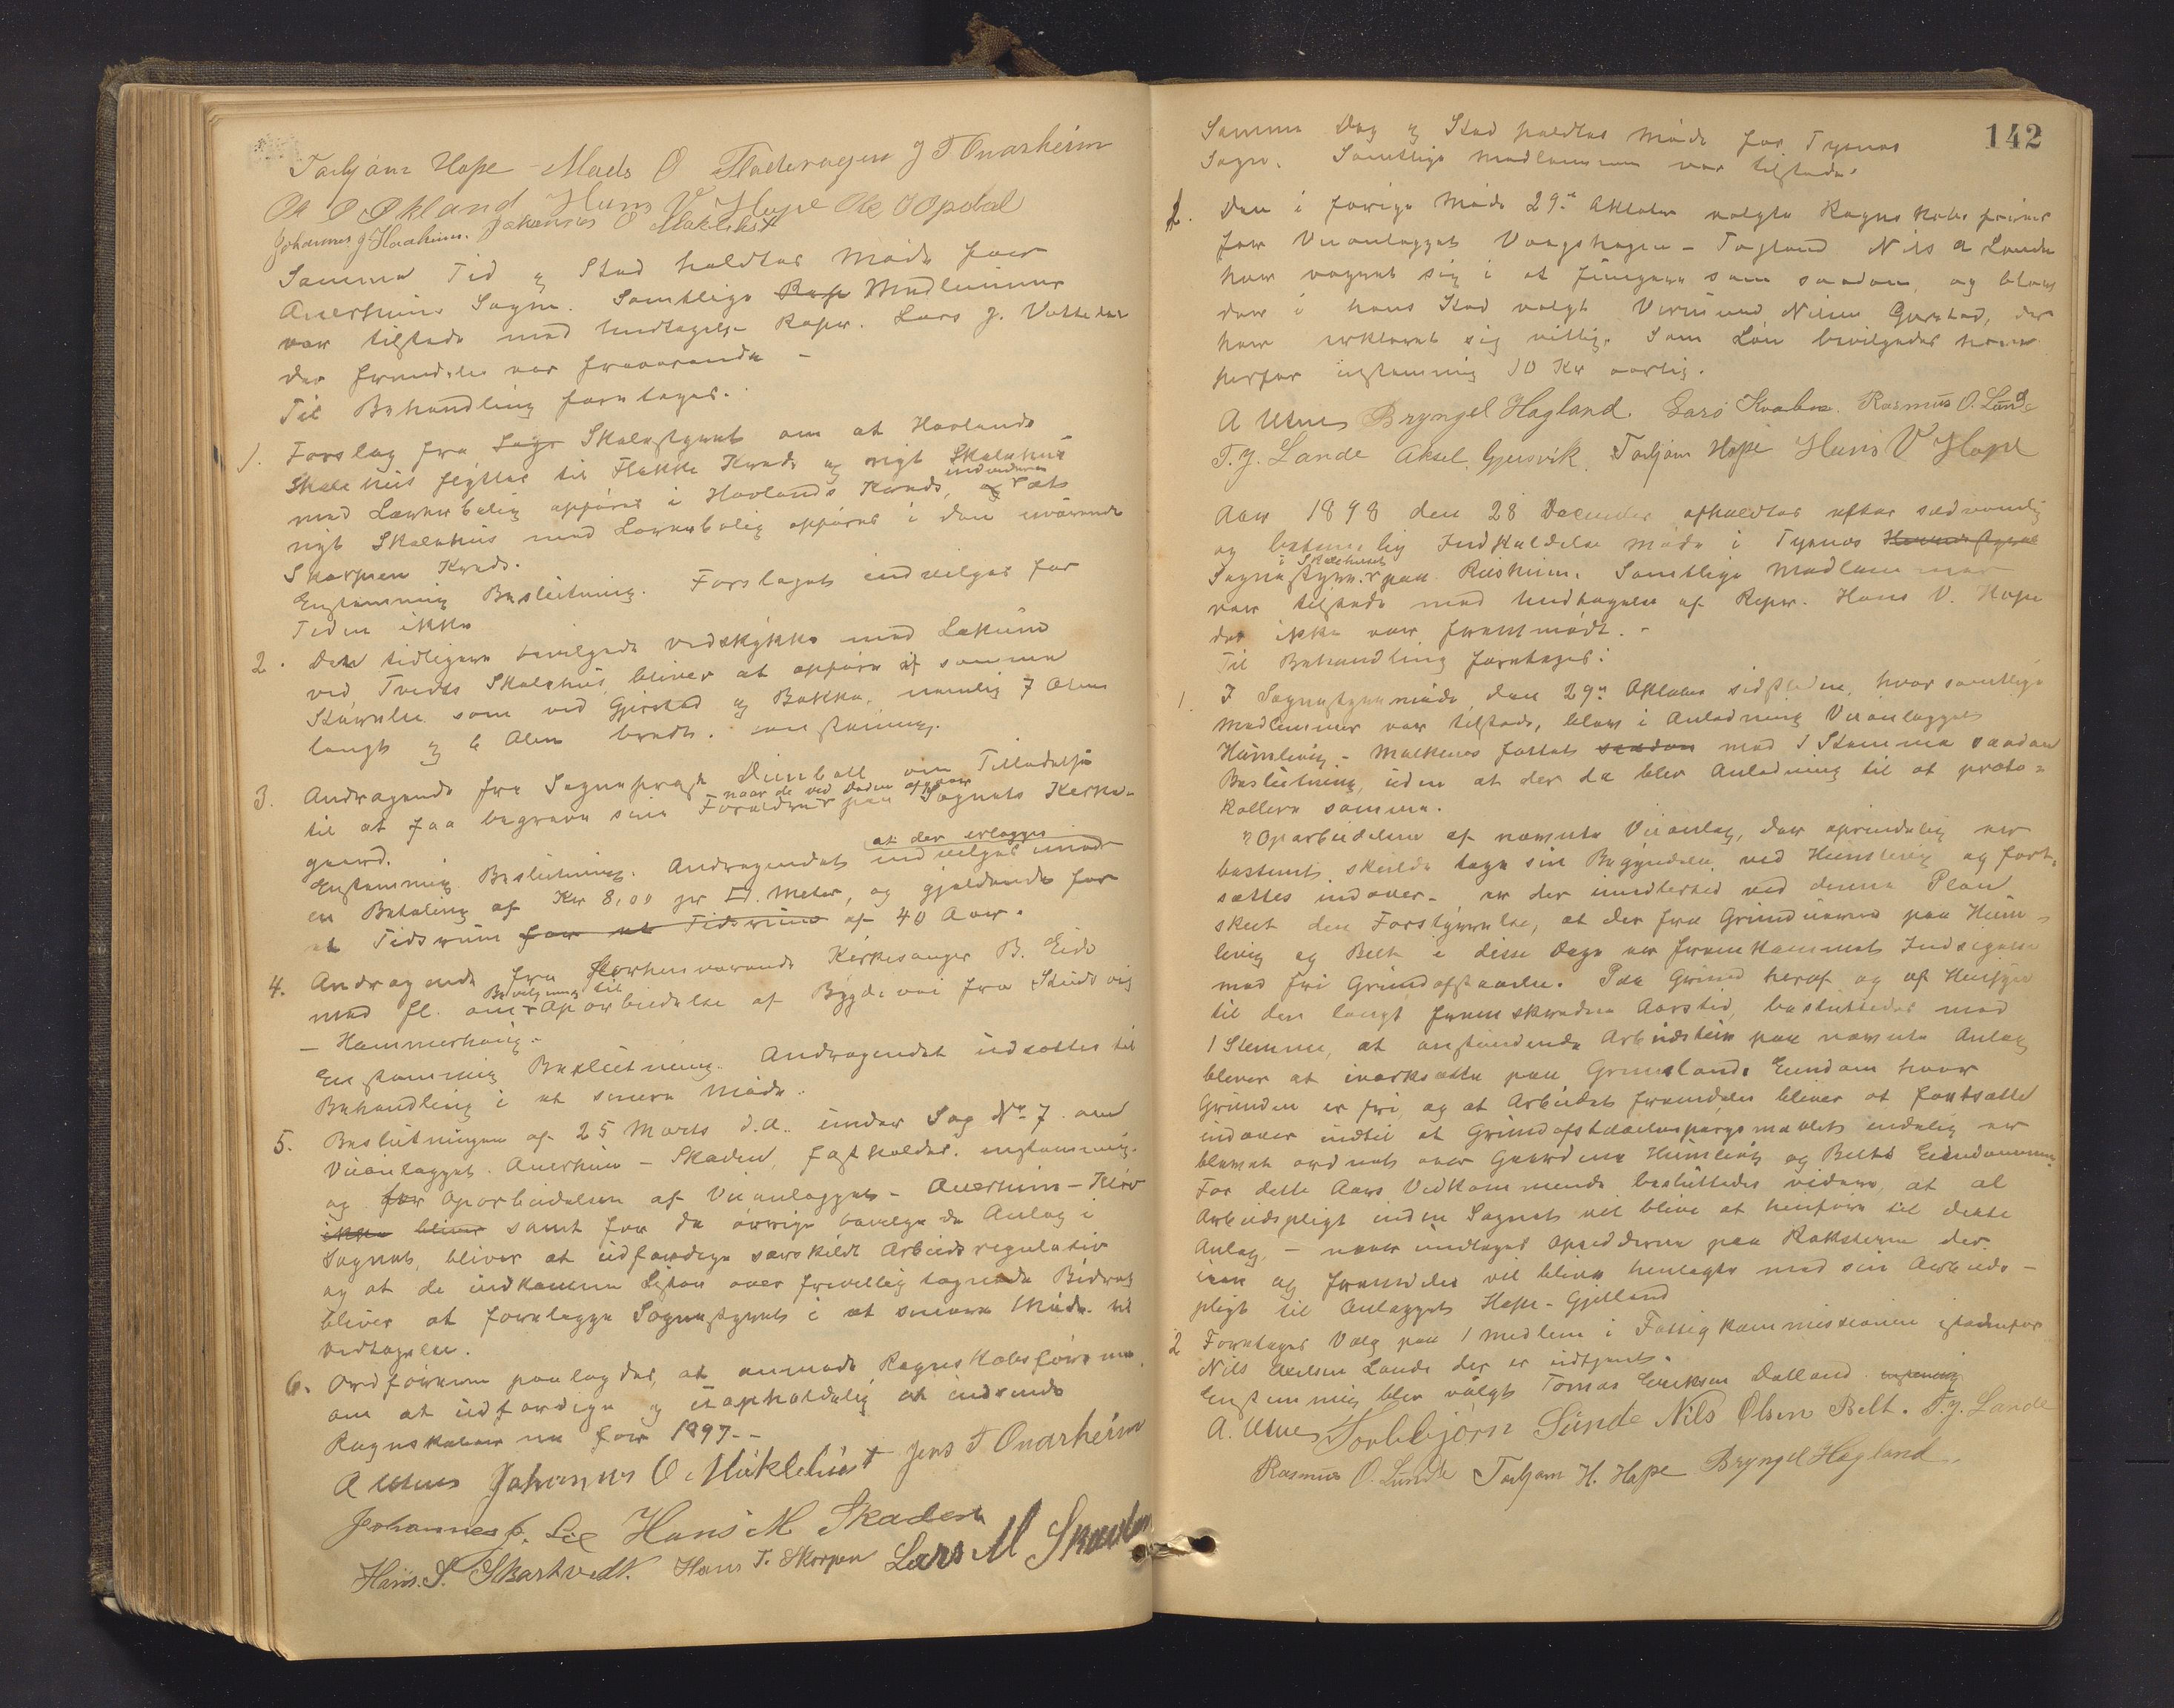 Torbjørn Hope Mads O Flatevagen J T Onarheim
Ole O Økland Hans V Hope Ole O Opdal
Johannes J Haaheim. Johannes O Møklebust
Samme Tid og Sted holdtes Møde for
Anerheims Sogn. Samtlige Medlemmer
var tilstede med Undtagelse Repr. Lars J. Vattedal
der fremdeles var fraværende –
Til Behandling foretoges.
1. Forslag fra Skolestyret om at Hovlands
Skolehus flyttes til Flakke Kreds og nyt Skolehus
med Lærerbolig opføres i Hovlands Kreds, endvidere at et
nyt Skolehus med Lærerbolig opføres i den nuværende
Skorpen Kreds.
Enstemmig Beslutning. Forslaget indvilges for
Tiden ikke
2. Det tidligere bevilgede Vedskykke med Lokum
ved Tveits Skolehus bliver at opføre af samme
Størrelse som ved Gjerstad og Bakka, nemlig 7 Alen
langt og 6 Alen bredt. enstemmig.
3. Andragende fra Sogneprest Dunball om Tilladelse
til at faa begrave sine Forældre naar de ved Døden afgaar paa Sognets Kirke-
gaard.
Enstemmig Beslutning. Andragendet indvilges mod at der erlægges
en Betaling af Kr 8,00 pr □. Meter, og gjeldende for
et Tidsrum for et Tidsrum af 40 Aar.
4. Andragende fra forhenværende Kirkesanger B. Eide
med fl. om Bevilgning til Oparbeidelse af Bygdevei fra Skudsvig
– Hammerhaug.
Enstemmig Beslutning. Andragendet udsættes til
Behandling i et senere Møde.
5. Beslutningen af 25 Marts d.A. under Sag No 7 om
Veianlægget Anerheim – Skaden, fastholdes. enstemmig.
og for Oparbeidelsen af Veianlægget – Anerheim –
ikke bliver samt for de øvrige bevilgede Anlæg i
Sognet, bliver at udfærdige særskildt Arbeidsregulativ
og at de indkomne Lister over frivillig tegnede Bidrag
bliver at forelægge Sognestyret i et senere Møde til
Vedtagelse.
6. Ordføreren paalagdes, at anmode Regnskabsføreren
om at udfærdige og uopholdelig at indsende
Regnskaberne for 1897. –
A Utnes Johannes O. Møklebust Jens T Onarheim
Johannes J. Lie Hans M Skaden
Hans. S. Skartvedt. Hans T. Skorpen Lars M Skaden
142
Samme Dag og Sted holdtes Møde for Tysnes
Sogn. Samtlige Medlemmer var tilstede.
1. Den i forrige Møde 29de Oktober valgte Regnskabsfører
for Veianlægget Vaagshagen – Tagland Nils A Lande
har vægret sig i at fungere som saadan, og blev
der i hans Sted valgt Nilsen Gjerstad, der
har erklæret sig villig. Som Løn bevilgedes ham
herfor enstemmig 10 Kr aarlig.
A Utnes Bryngel Hagland. Lars Kvalvn. Rasmus O. Lunde
T. J. Lande Aksel. Gjersvik. Torbjørn Hope Hans V Hope
Aar 1898 den 28 December afholdtes efter sædvanlig
og betimelig Indkaldelse Møde i Tysnes Herredsstyre
Sognestyre i Skolehuset paa Reisheim. Samtlige Medlemmer
var tilstede med Undtagelse af Repr. Hans V. Hope
der ikke var fremmødt. –
Til Behandling foretoges:
1. I Sognestyremøde den 29de Oktober sidstleden, hvor samtlige
Medlemmer var tilstede, blev i Anledning Veianlægget
Humlevig – Malkenes fattet saadan med 1 Stemme saadan
Beslutning, uden at der da blev Anledning til at proto-
kollere samme.
"Oparbeidelsen af nævnte Veianlæg, der oprindelig er
bestemt skulde tage sin Begyndelse ved Humlevig og fort-
sættes indover – er der imidlertid ved denne Plan
skeet den Forstyrrelse, at der fra Grundeierne paa Hum-
levig og Belt i disse Dage er fremkommet Indsigelse
mod fri Grundafstaaelse. Paa Grund heraf og af Hensyn
til den langt fremskredne Aarstid, besluttedes mod
1 Stemme, at anstundende Arbeidstein paa nævnte Anlæg
bliver at iværksætte paa Grunslands Eiendom hvor
Grunden er fri, og at Arbeidet fremdeles bliver at fortsætte
indover indtil at Grundafstaaelsespørgsmaalet endelig er
blevet ordnet over Gaardene Humlevig og Belts Eiendomme.
For dette Aars Vedkommende besluttedes videre, at al
Arbeidspligt inden Sognet vil blive at henføre til dette
Anlæg, – naar undtages Opsidderne paa Raksterne der
iaar og fremdeles vil blive henlagte med sin Arbeids-
pligt til Anlægget Hope – Gjelland
2 Foretoges Valg paa 1 Medlem i Fattigkommissionen istedenfor
Nils Nilsen Lande der er udtjent.
Enstemmig blev valgt Tomas Eriksen Dalland enstemmig
A. Utnes Torbbjørn Sunde Nils Olsen Belt. T. J. Lande
Rasmus O. Lunde Torbjørn H. Hope Bryngel Hagland.